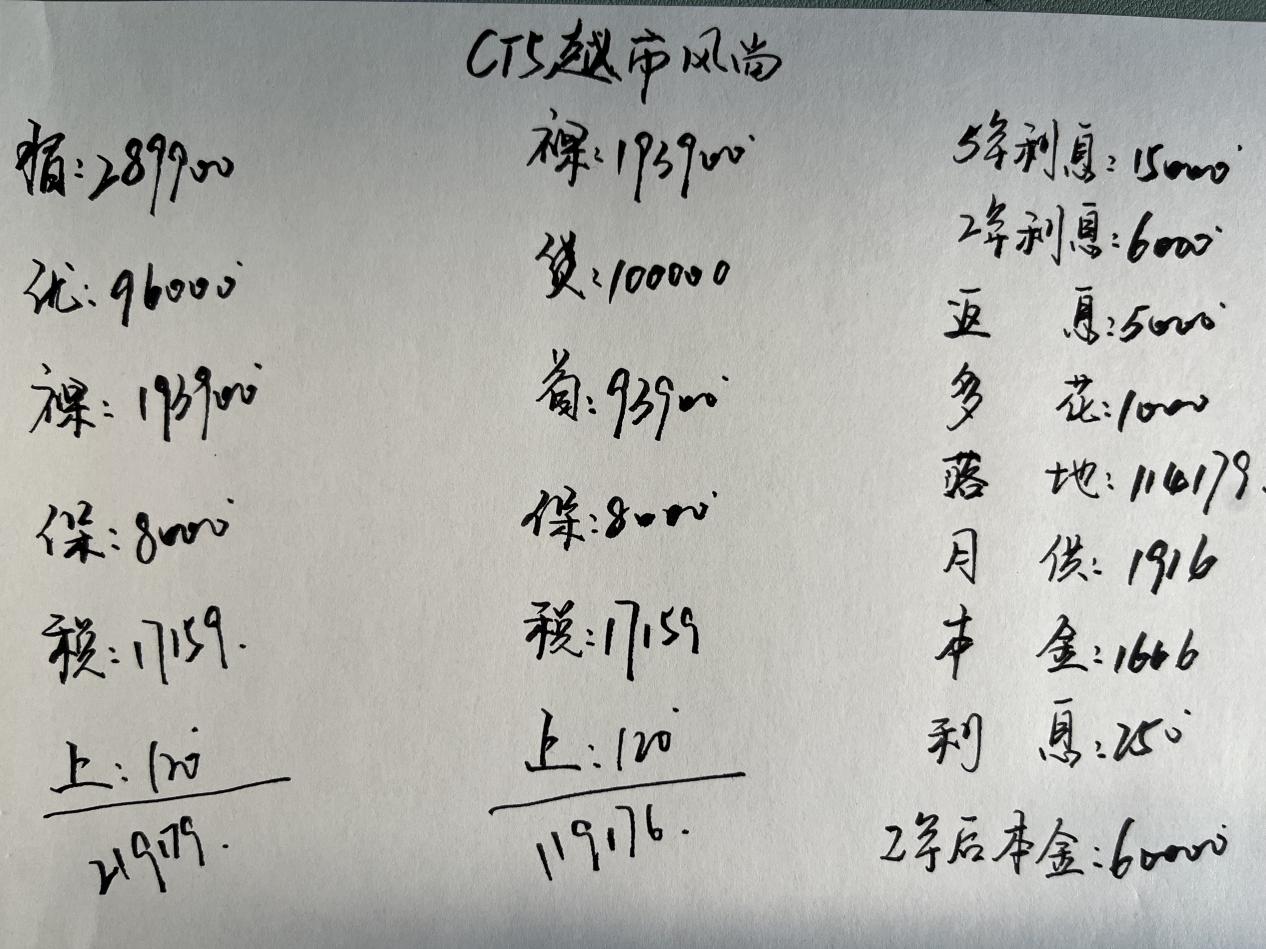 CT5越市风尚
指:289900
优:96000
裸:193900
保:8000
税:17159.
上:120
219179.
裸:193900
贷:100000
首:93900
保:8000
税:17159
上:120
119176.
5年利息:15000
2年利息:6000
返息:5000
多花:1000
落地:114179.
月供:1916
本金:1666
利息:250
2年后本金:60000